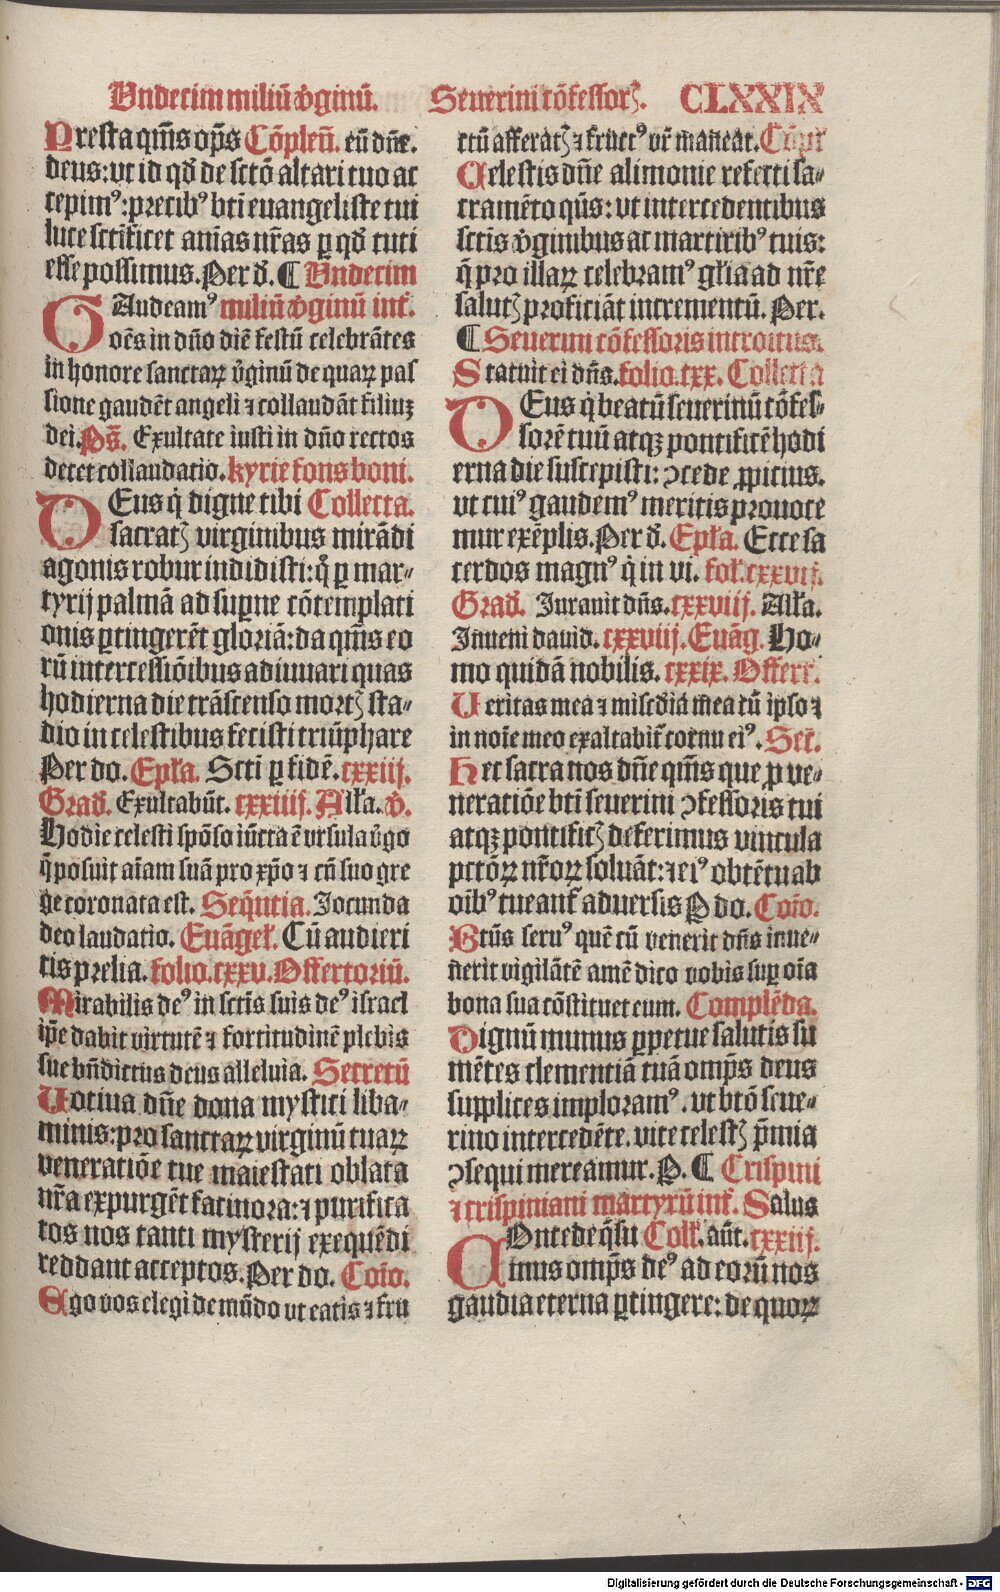 Undecim miliū v̄ginū. Seuerini cōfessorꝭ. CLXXIX
Presta qm̄s op̄s Cōpleñ. eū dn̄e.
deus: vt id qd̄ de sctō altari tuo ac
cepimꝰ: precibꝰ bt̄i euangeliste tui
luce sctificet aīas nr̄as ꝑ qd̄ tuti
esse possimus. Per d̄. ¶ Undecim
GAudeamꝰ miliū v̄ginū int̄.
oēs in dn̄o diē festū celebrātes
in honore sanctaꝝ v̄ginū de quaꝝ pas
sione gaudēt angeli ⁊ collaudāt filiuꝫ
dei. Ps̄. Exultate iusti in dn̄o rectos
decet collaudatio. kyrie fons boni.
DEus q̄ digne tibi Collecta.
sacratꝭ virginibus mirādi
agonis robur indidisti: q̄ ꝑ mar⸗
tyrij palmā ad sup̄ne cōtemplati
onis ꝑtingerēt gloriā: da qm̄s eo
rū intercessiōibus adiuuari quas
hodierna die trāscenso mortꝭ sta⸗
dio in celestibus fecisti triūphare
Per do. Epła. Scti ꝑ fidē. cxxiij.
Grad̄. Exultabūt. cxxiiij. Ałła. v̄.
Hodie celesti spōso iūcta ē vrsula v̄go
q̄ posuit aīam suā pro xp̄o ⁊ cū suo gre
ge coronata est. Seq̄ntia. Jocunda
deo laudatio. Euāgeł. Cū audieri
tis prelia. folio. cxxv. Offertoriū.
Mirabilis deꝰ in sctis suis deꝰ israel
ip̄e dabit virtutē ⁊ fortitudinē plebis
sue bn̄dictus deus alleluia. Secretū
Uotiua dn̄e dona mystici liba⸗
minis: pro sanctaꝝ virginū tuaꝝ
veneratiōe tue maiestati oblata
nr̄a expurgēt facinora: ⁊ purifica
tos nos tanti mysterij exequēdi
reddant acceptos. Per do. Coīo.
Ego vos elegi de mūdo vt eatis ⁊ fru
ctū afferatꝭ ⁊ fructꝰ vr̄ maneat.
Celestis dn̄e alimonie refecti sa⸗
cramēto q̄us: vt intercedentibus
sctis v̄ginibus ac martiribꝰ tuis:
q̄ pro illaꝝ celebramꝰ głia ad nr̄e
salutꝭ proficiāt incrementū. Per.
¶ Seuerini cōfessoris introitus.
Statuit ei dn̄s. folio. cxx. Collecta
DEus q̄ beatū seuerinū cōfes⸗
sorē tuū atqꝫ pontificē hodi
erna die suscepisti: ↄcede ꝓpicius.
vt cuiꝰ gaudemꝰ meritis prouoce
mur exēplis. Per d̄. Epła. Ecce sa
cerdos magnꝰ q̄ in vi. foł. cxxvij.
Grad̄. Jurauit dn̄s. cxxviij. Ałła.
Inueni dauid. cxxviij. Euāg. Ho⸗
mo quidā nobilis. cxxix. Offert̄.
Ueritas mea ⁊ misc̄dia mea cū ip̄so ⁊
in noīe meo exaltabit̄ cornu eiꝰ. Secr̄.
Hec sacra nos dn̄e qm̄s que ꝓ ve⸗
neratiōe bt̄i seuerini ↄfessoris tui
atqꝫ pontificꝭ deferimus vincula
pctōꝝ nr̄oꝝ soluāt: ⁊ eiꝰ obtētu ab
oībꝰ tueant̄ aduersis P do. Coīo.
Btūs seruꝰ quē cū venerit dn̄s inue⸗
nerit vigilātē amē dico vobis sup̄ oīa
bona sua cōstituet eum. Complēda.
Dignū munus ꝑpetue salutis su
mētes clementiā tuā omp̄s deus
supplices imploramꝰ. vt btō seue⸗
rino intercedēte. vite celestꝭ p̄mia
ↄsequi mereamur. P. ¶ Crispini
⁊ crispiniani martyrū int̄. Salus
Ontedeq̄su Coll̄. aūt. cxxiij.
imus omp̄s deꝰ ad eorū nos
gaudia eterna ꝑtingere: de quoꝝ
Digitalisierung gefördert durch die Deutsche Forschungsgemeinschaft - DFG